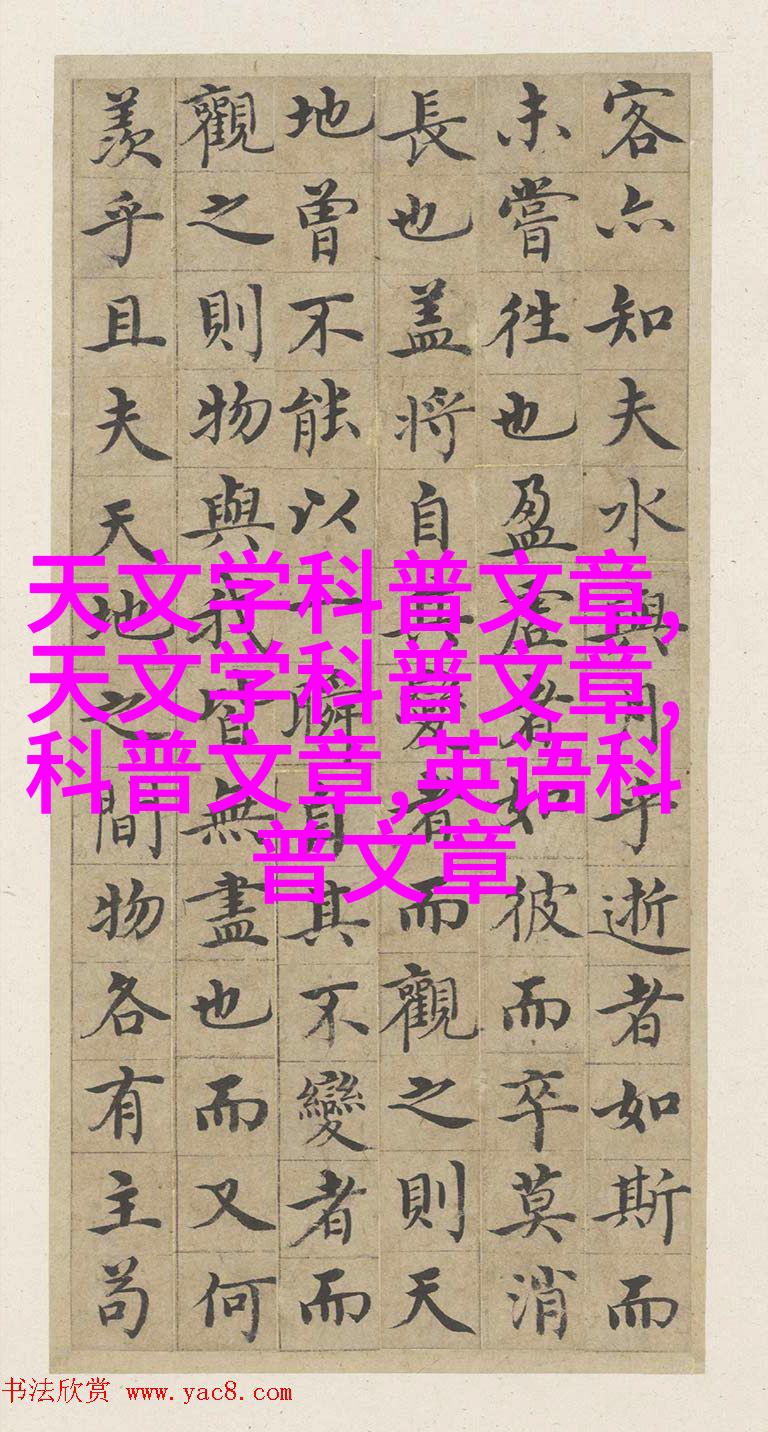 客亦知夫水與月乎逝者如斯而
未嘗往也盈虛者如彼而卒莫消
長也盖將自其變者而觀之則天
地曾不能以一瞬自其不變者而
觀之則物與我皆無盡也而又何
羨乎且夫天地之間物各有主苟
天文学科普文章,
天文学科普文章,
科普文章,英语科
普文章
书法欣赏 www.yac8.com